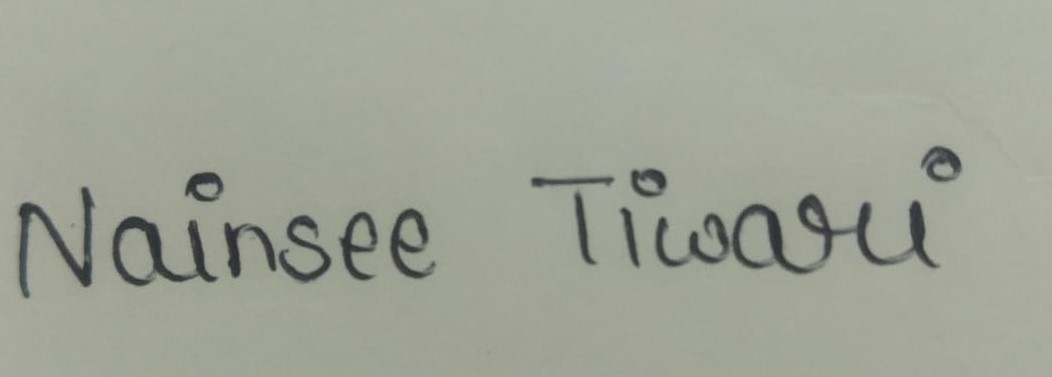 Nainsee Tiwari